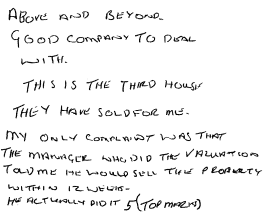 ABOVE AND BEYOND.
GOOD COMPANY TO DEAL
WITH.
THIS IS THE THIRD HOUSE
THEY HAVE SOLD FOR ME.
MY ONLY COMPLAINT WAS THAT
THE MANAGER WHO DID THE VALUATION
TOLD ME HE WOULD SELL THE PROPERTY
WITHIN 12 WEEKS-
HE ACTUALLY DID IT 5 (TOP MARKS)